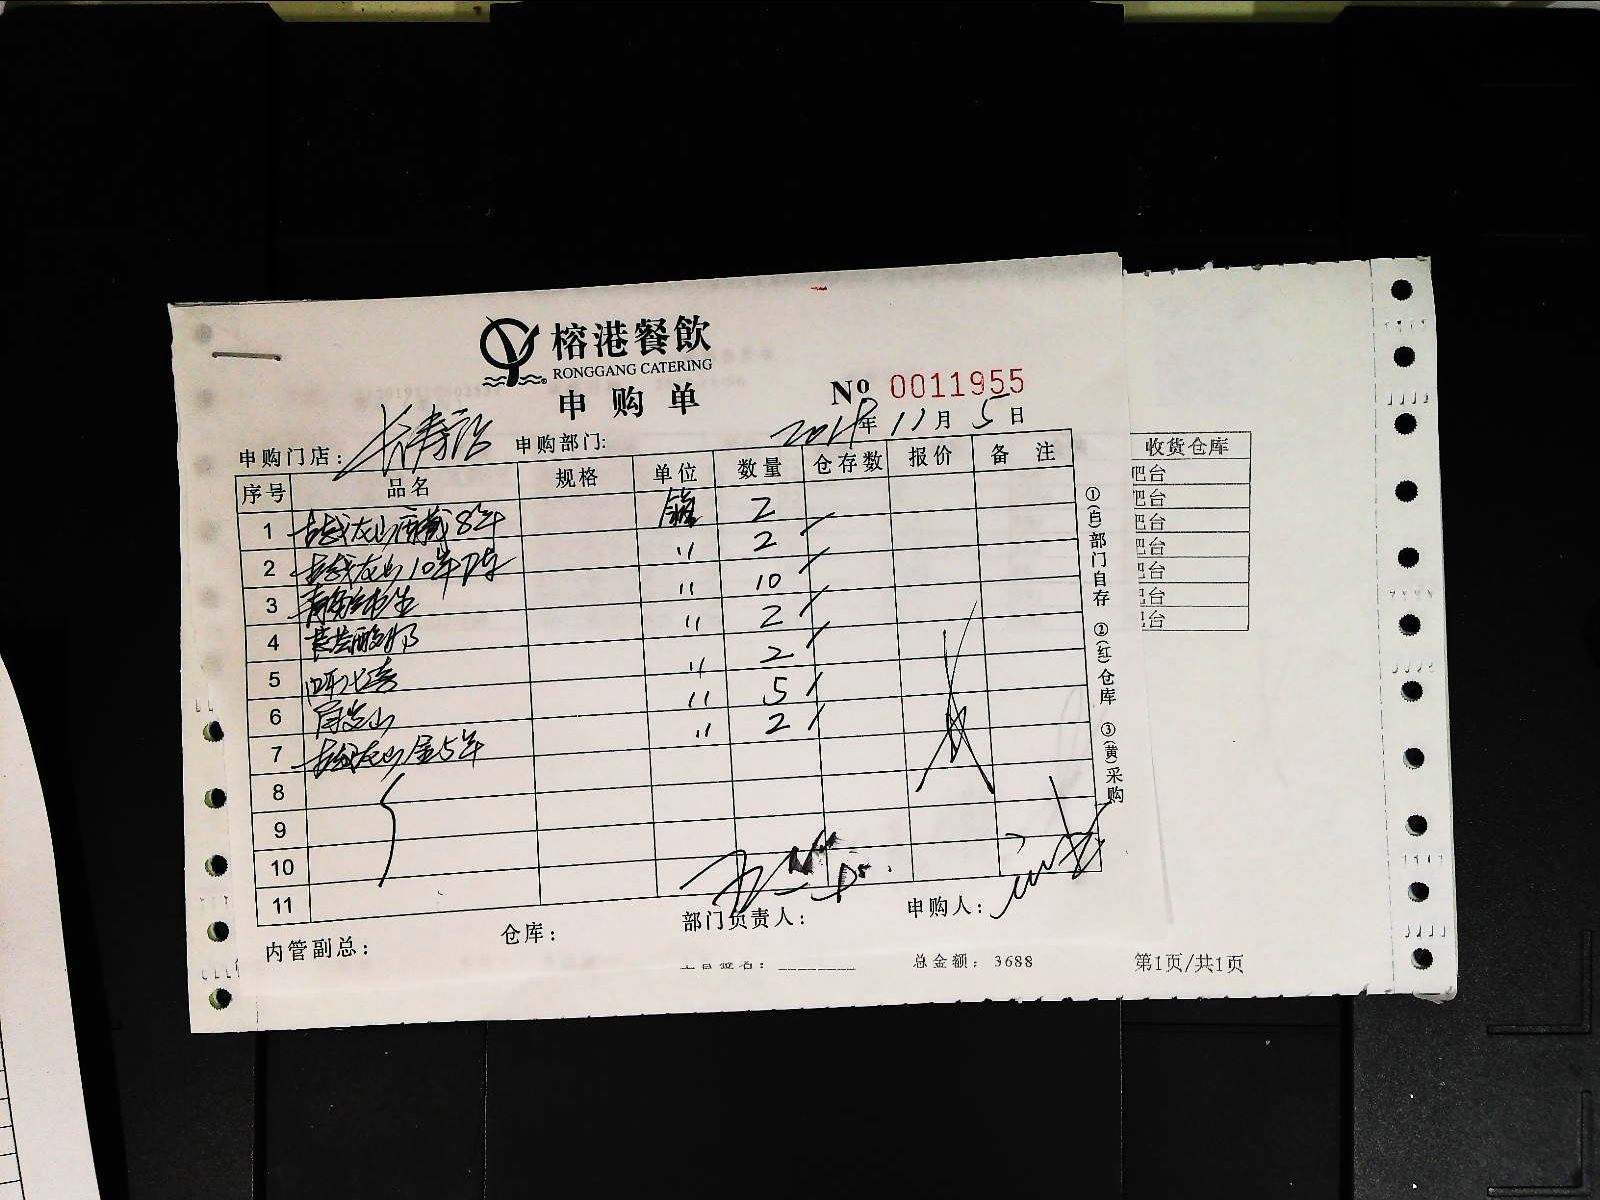 榕港餐飲
RONGGANG CATERING
申购单
Nº 0011955
2019年11月5日
申购门店: 长寿路 申购部门:
序号 品名 规格 单位 数量 仓存数 报价 备注
1 古越龙山西藏8年 箱 2
2 古越龙山10年 〃 2
3 青岛纯生 〃 10
4 〃 2
5 〃 2
6 〃 5
7 古越龙山金5年 〃 2
8
9
10
11
内管副总: 仓库: 部门负责人: 申购人:
①(白)部门自存 ②(红)仓库 ③(黄)采购
收货仓库
吧台
吧台
吧台
吧台
吧台
吧台
吧台
总金额: 3688 第1页/共1页